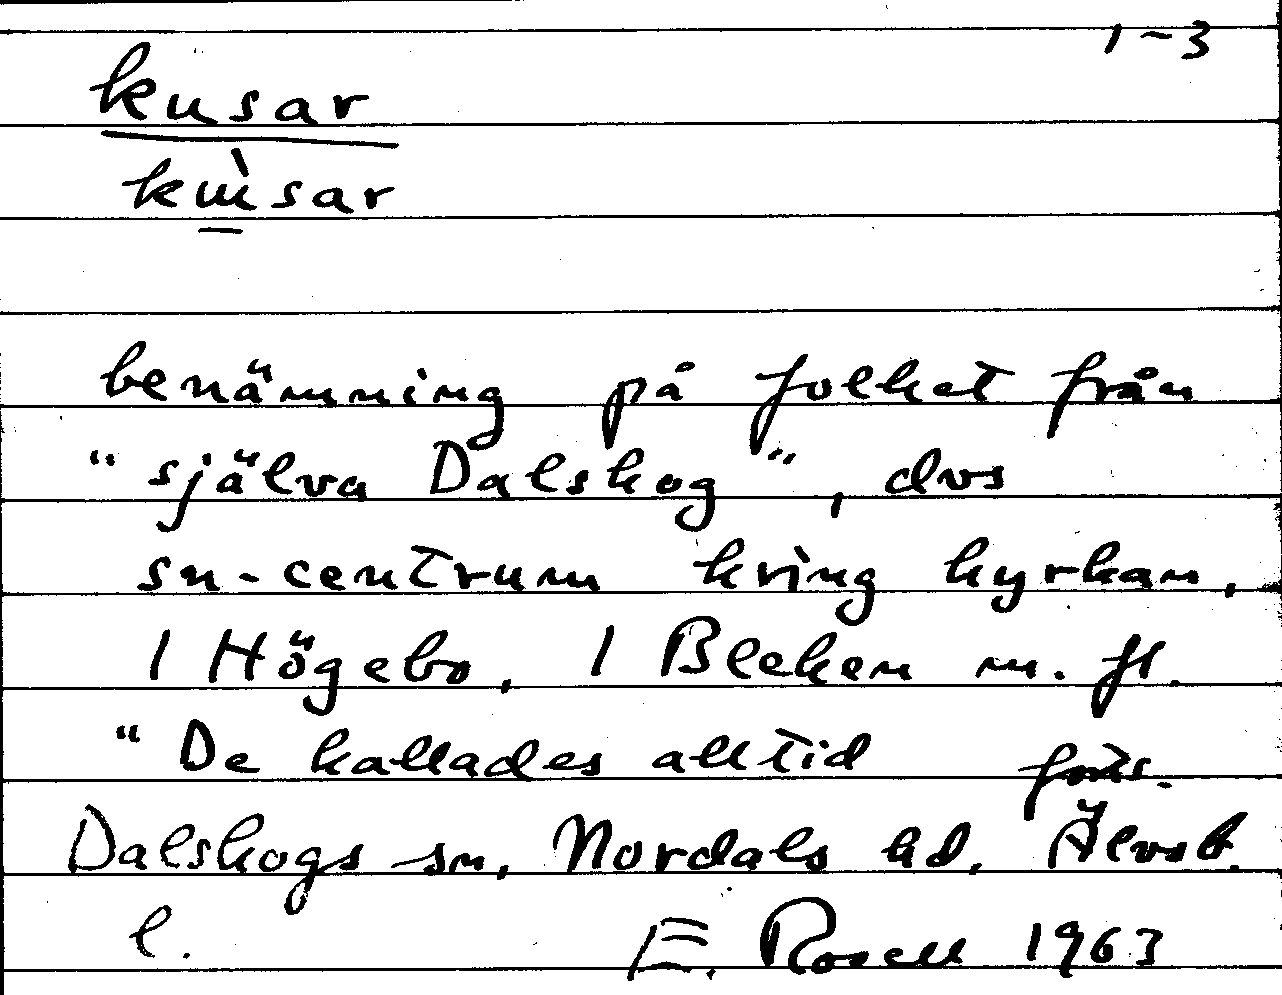 1-3
kusar
kùsar
benämning på folket från
"själva Dalskog", dvs
sn-centrum kring kyrkan,
i Högebo, i Bleken m. fl.
"De kallades alltid forts.
Dalskogs sn, Nordals hd, Älvsb.
l. E. Rosell 1963